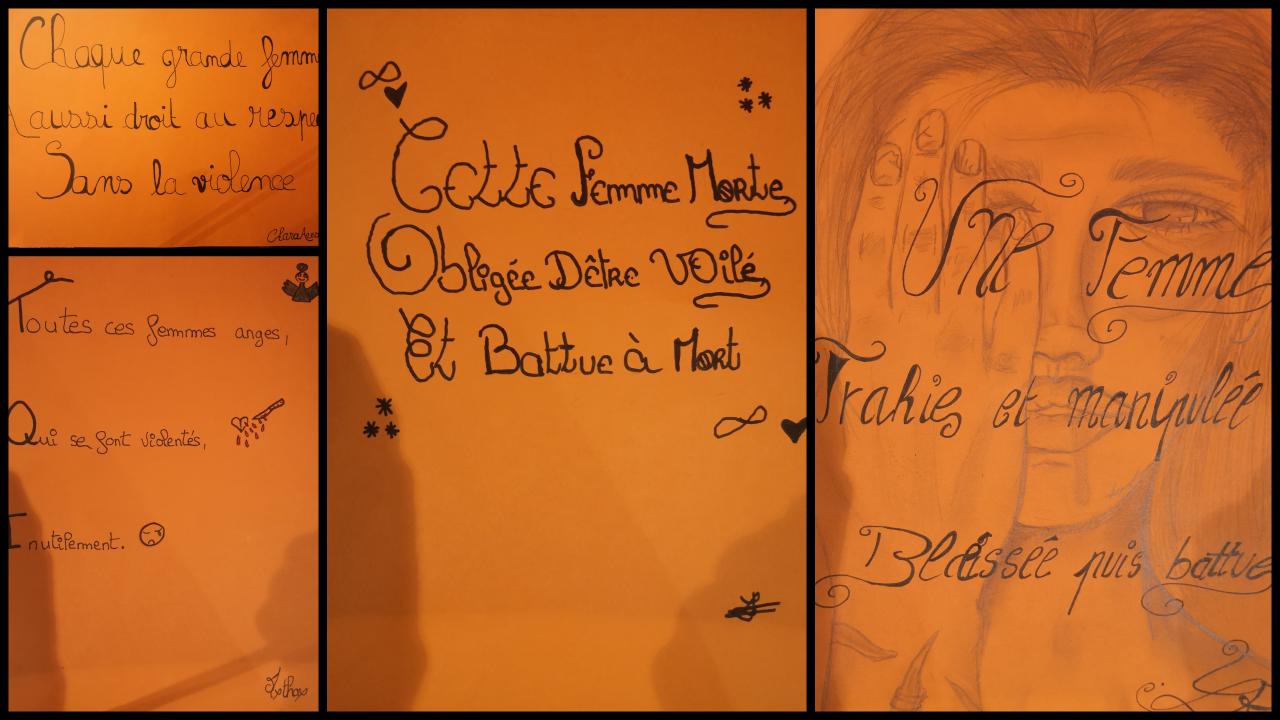 Chaque grande femm
A aussi droit au respe
Sans la violence
Toutes ces femmes anges,
Qui se font violentés,
Inutilement.
Cette Femme Morte
Obligée Dêtre Voilé
Et Battue à Mort
Une Femme
Trahie et manipulée
Bléssée puis battue